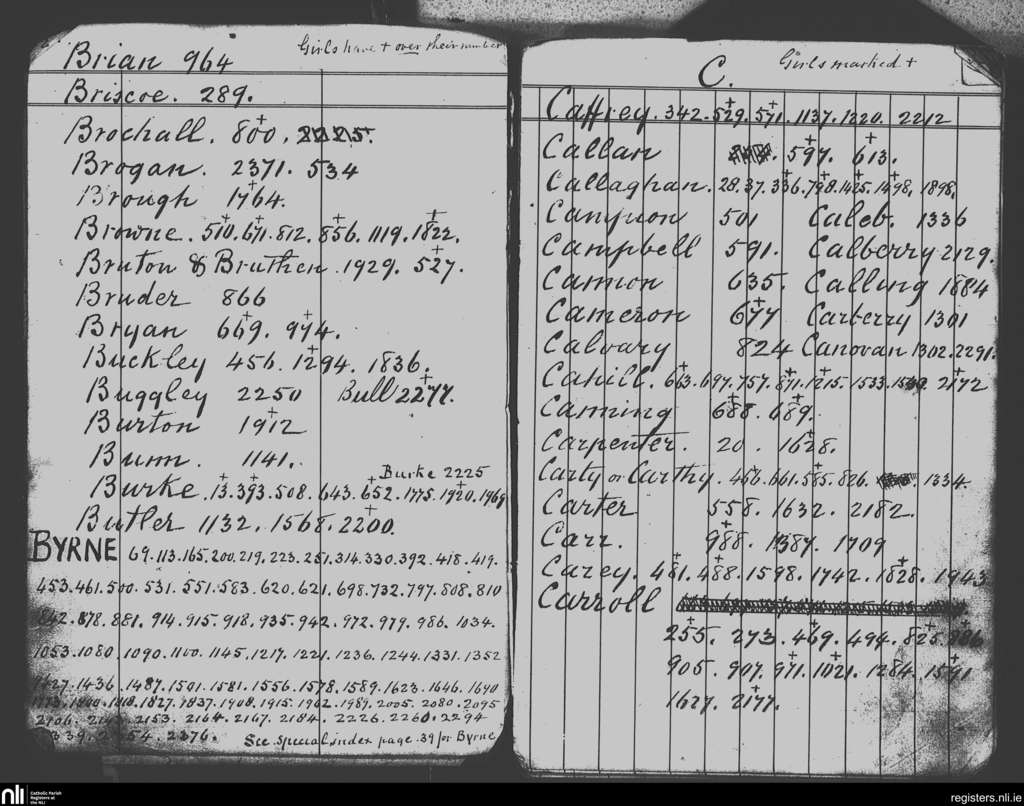 Girls have + over their number
Brian 964
Briscoe. 289.
Brochall. 800.
Brogan. 2371. 534
Brough 1764.
Browne. 510. 671. 812. 856. 1119. 1822.
Bruton & Bruthen. 1929. 527.
Bruder 866
Bryan 669. 974.
Buckley 456. 1294. 1836.
Buggley 2250 Bull 2277.
Burton 1912
Bunn. 1141.
Burke 2225
Burke. 13. 393. 508. 643. 652. 1775. 1920. 1969
Butler 1132. 1568. 2200.
BYRNE 69. 113. 165. 200. 219. 223. 251. 314. 330. 392. 418. 419.
453. 461. 500. 531. 551. 583. 620. 621. 698. 732. 797. 808. 810
842. 878. 881. 914. 915. 918. 935. 942. 972. 979. 986. 1034.
1053. 1080. 1090. 1100. 1145. 1217. 1221. 1236. 1244. 1331. 1352
1436. 1487. 1501. 1581. 1556. 1578. 1589. 1623. 1646. 1690
1800. 1818. 1827. 1837. 1908. 1915. 1962. 1987. 2005. 2080. 2095
2106. 2153. 2164. 2167. 2184. 2226. 2260. 2294
2376. See special index page 39 for Byrne
Girls marked +
C.
Caffrey. 342. 529. 571. 1137. 1220. 2212
Callan 597. 613.
Callaghan. 28. 37. 336. 798. 1425. 1498. 1898.
Campion 501 Caleb. 1336
Campbell 591. Calberry 2129.
Cannon 635. Calling 1884
Cameron 677 Carberry 1301
Calvary 824 Canovan 1302. 2291.
Cahill. 663. 697. 757. 871. 1215. 1533. 2172
Canning 688. 689.
Carpenter. 20. 1628.
Carty or Carthy. 456. 661. 585. 826. 1334
Carter 558. 1632. 2182.
Carr. 988. 1387. 1709
Carey. 481. 488. 1598. 1742. 1828. 1943
Carroll
255. 273. 469. 494. 825. 886
905. 907. 971. 1021. 1284. 1591
1627. 2177.
nli Catholic Parish Registers at the NLI
registers.nli.ie